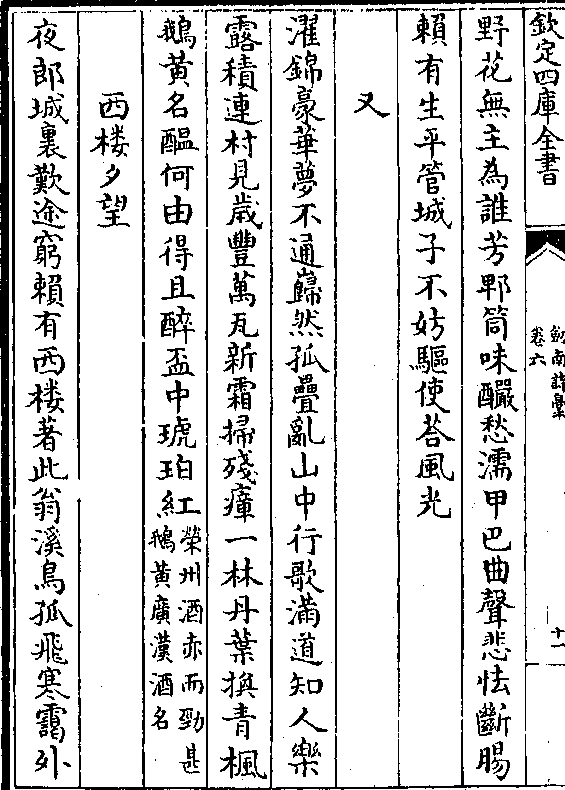 欽定四庫全書
劍南詩稾
卷六
十一
野花無主為誰芳郫筒味釅愁濡甲巴曲聲悲怯斷腸
賴有生平管城子不妨驅使荅風光
又
濯錦豪華夢不通巋然孤疊亂山中行歌滿道知人樂
露積連村見歲豐萬瓦新霜掃殘瘴一林丹葉換青楓
鵝黃名醖何由得且醉盃中琥珀紅榮州酒赤而勁甚
鵝黃廣漢酒名
西楼夕望
夜郎城裏歎途窮賴有西楼著此翁溪鳥孤飛寒靄外